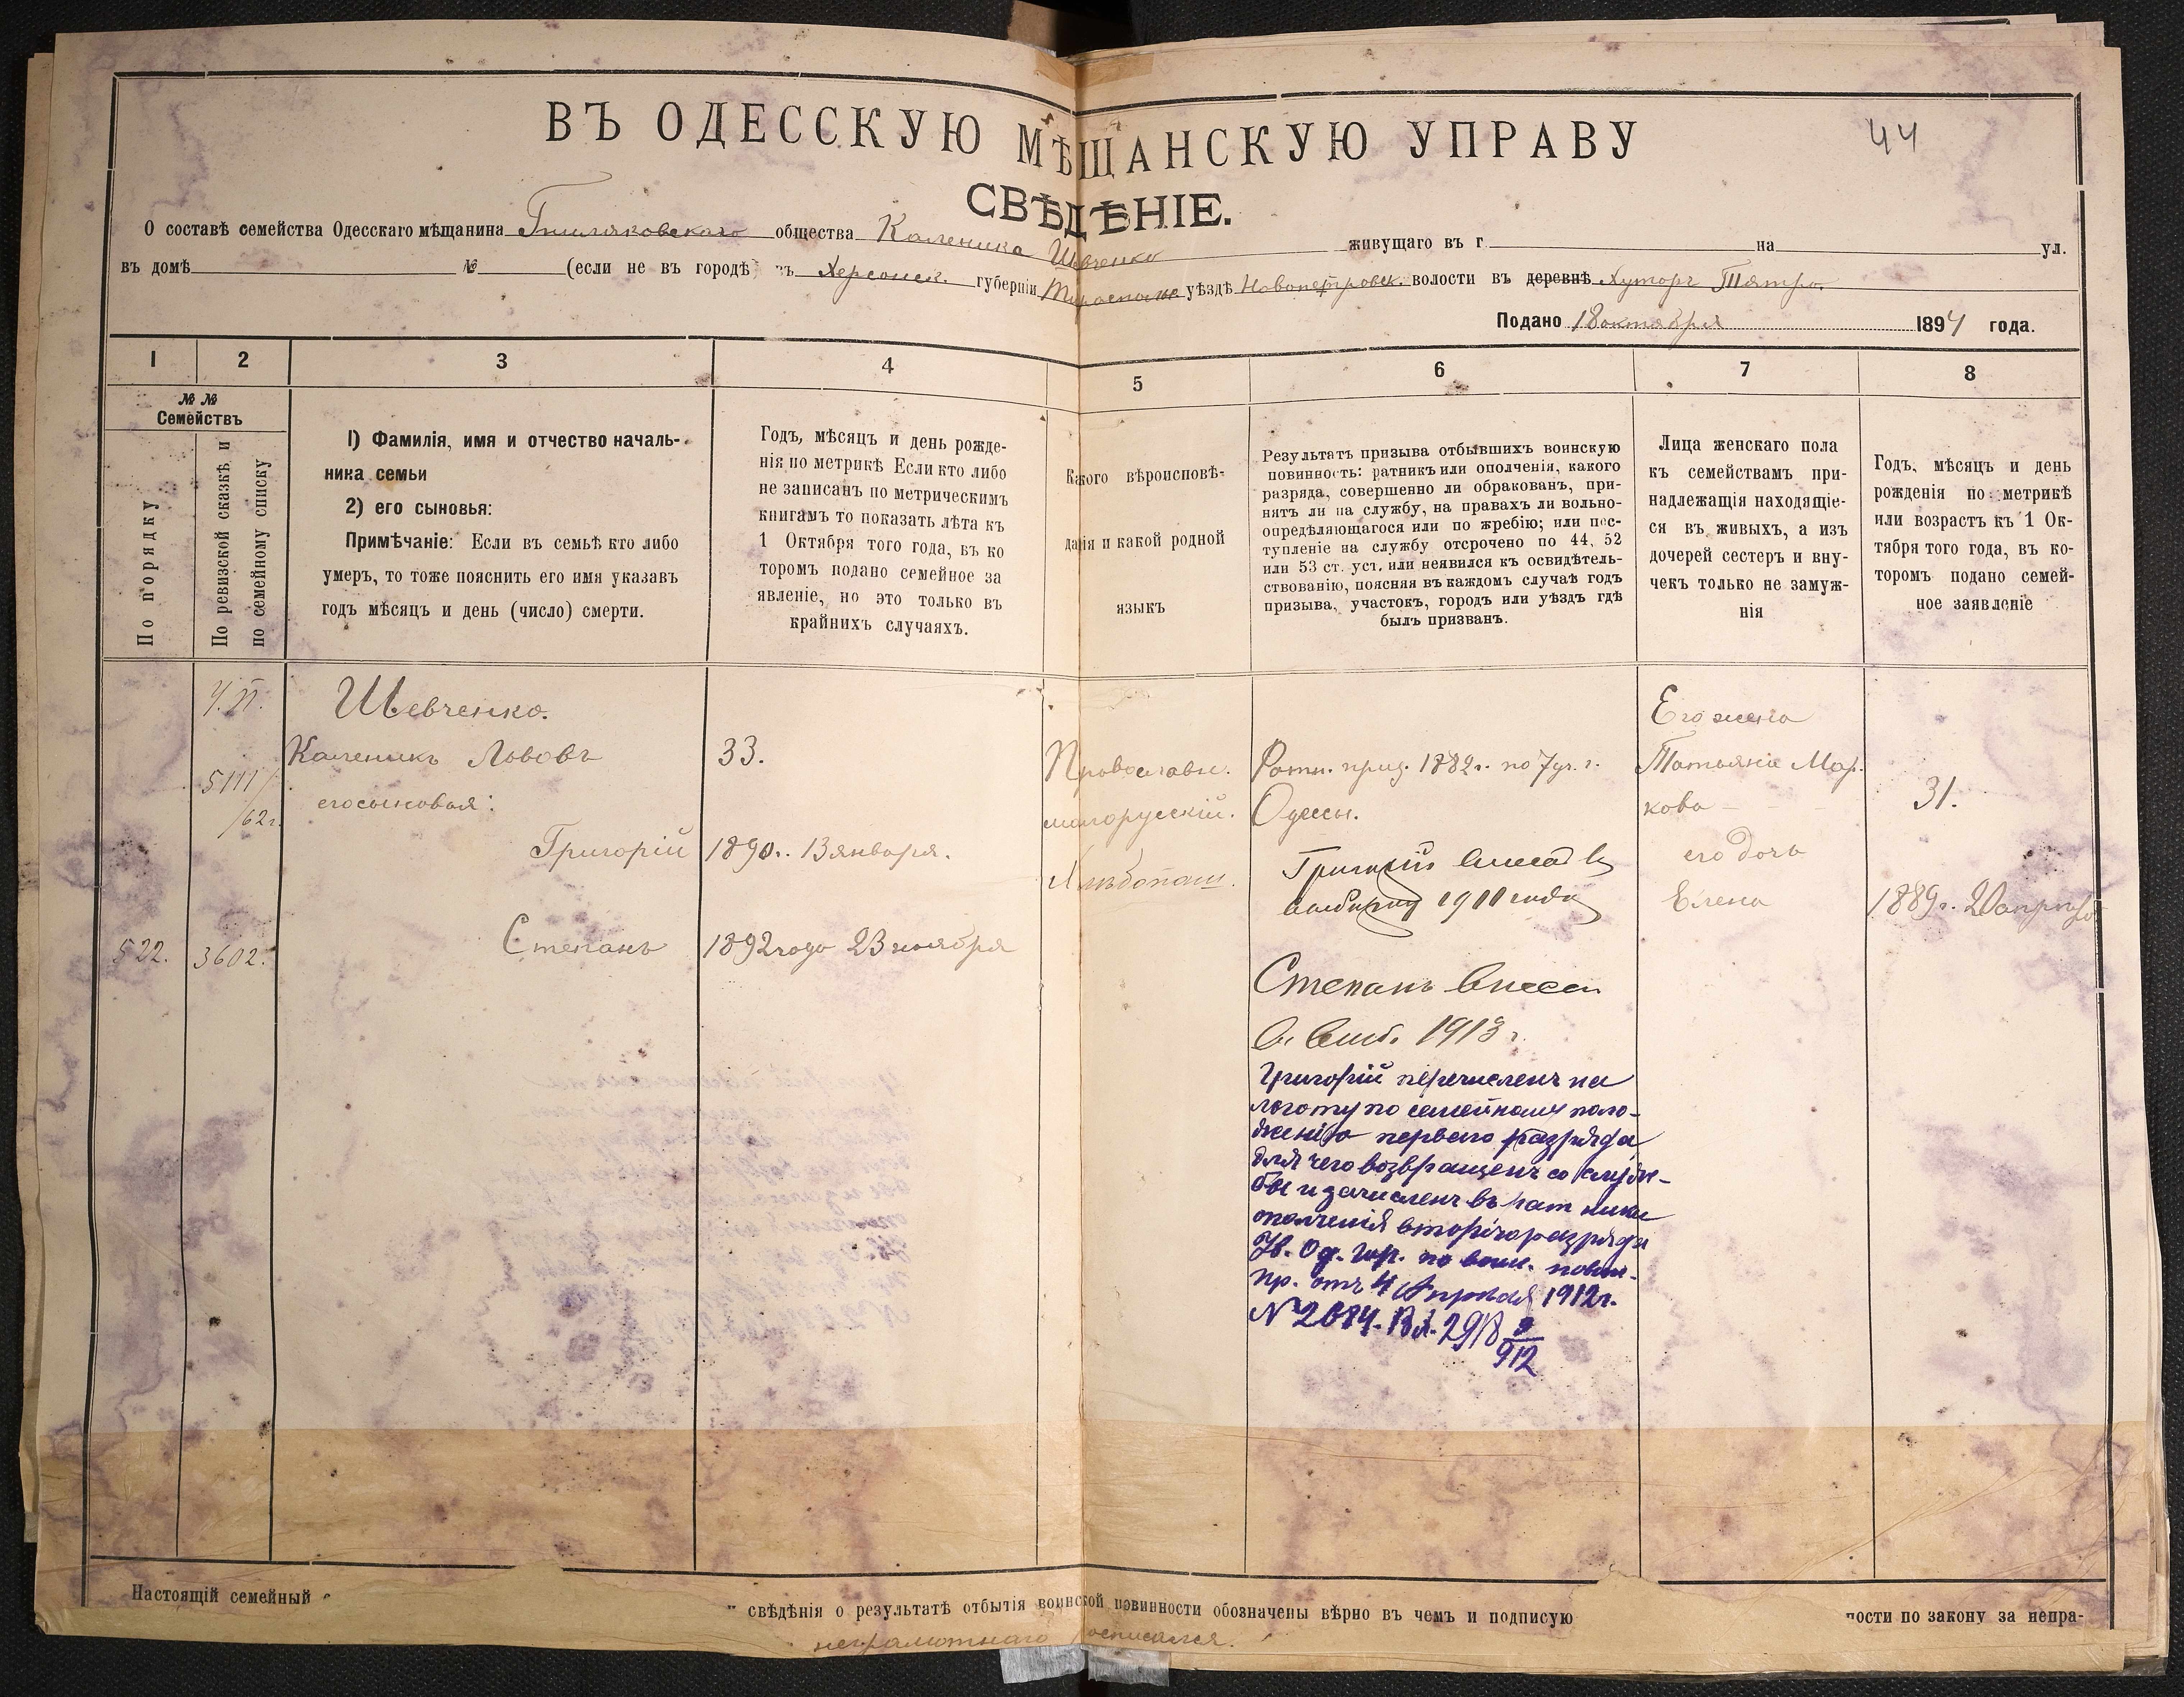 ВЪ ОДЕССКУЮ МѢЩАНСКУЮ УПРАВУ
44
СВѢДѢНІЕ.
О составѣ семейства Одесскаго мѣщанина Гниляковскаго общества Каленика Шевченко живущаго въ г на ул.
въ домѣ № (если не въ городѣ) въ Херсонск. губерніи Тираспольс уѣздѣ Новопетровск. волости въ деревнѣ Хуторъ
Подано 18 октября 1894 года.
1 2 3 4 5 6 7 8
№ № Семействъ
По порядку
По ревизской сказкѣ и по семейному списку
1) Фамилія, имя и отчество началь-
ника семьи
2) его сыновья:
Примѣчаніе: Если въ семьѣ кто либо
умеръ, то тоже пояснить его имя указавъ
годъ мѣсяцъ и день (число) смерти.
Годъ, мѣсяцъ и день рожде-
нія по метрикѣ Если кто либо
не записанъ по метрическимъ
книгамъ то показать лѣта къ
1 Октября того года, въ ко
торомъ подано семейное за
явленіе, но это только въ
крайнихъ случаяхъ.
Какого вѣроисповѣ-
данія и какой родной
языкъ
Результатъ призыва отбывшихъ воинскую
повинность: ратникъ или ополченія, какого
разряда, совершенно ли обракованъ, при-
нятъ ли на службу, на правахъ ли вольно-
опредѣляющагося или по жребію; или пос-
тупленіе на службу отсрочено по 44, 52
или 53 ст. уст. или неявился къ освидѣтель-
ствованію, поясняя въ каждомъ случаѣ годъ
призыва, участокъ, городъ или уѣздъ гдѣ
былъ призванъ.
Лица женскаго пола
къ семействамъ при-
надлежащія находящіе-
ся въ живыхъ, а изъ
дочерей сестеръ и вну-
чекъ только не замуж-
нія
Годъ, мѣсяцъ и день
рожденія по метрикѣ
или возрастъ къ 1 Ок-
тября того года, въ ко-
торомъ подано семей-
ное заявленіе
Шевченко.
Каленикъ Львовъ
его сыновья:
Григорій
Степанъ
5111/
/62г.
522. 3602.
33.
1890г. 13 января.
1892 года 23 ноября
Православн.
малорусскій.
Хлѣбопаш.
Ратн. приз. 1882г. по 7 уч. г.
Одессы.
Григорій внесенъ въ
1911 года
Степанъ внесен
1913 г.
Григорій перечисленъ на
льготу по семейному поло-
женію перваго разряда
для чего возвращенъ со служ-
бы и зачисленъ въ ратники
ополченія второго разряда
Ув. Од. Гор. по воин. повин.
пр. отъ 4 Апрѣля 1912г.
N 2684. Вх. 2918
912
Его жена
Татьяна Мар-
кова
его дочь
Елена
31.
1889г. 20 апрѣля
Настоящій семейный
свѣдѣнія о результатѣ отбытія воинской повинности обозначены вѣрно въ чемъ и подписую
ности по закону за непра-
неграмотнаго росписался.